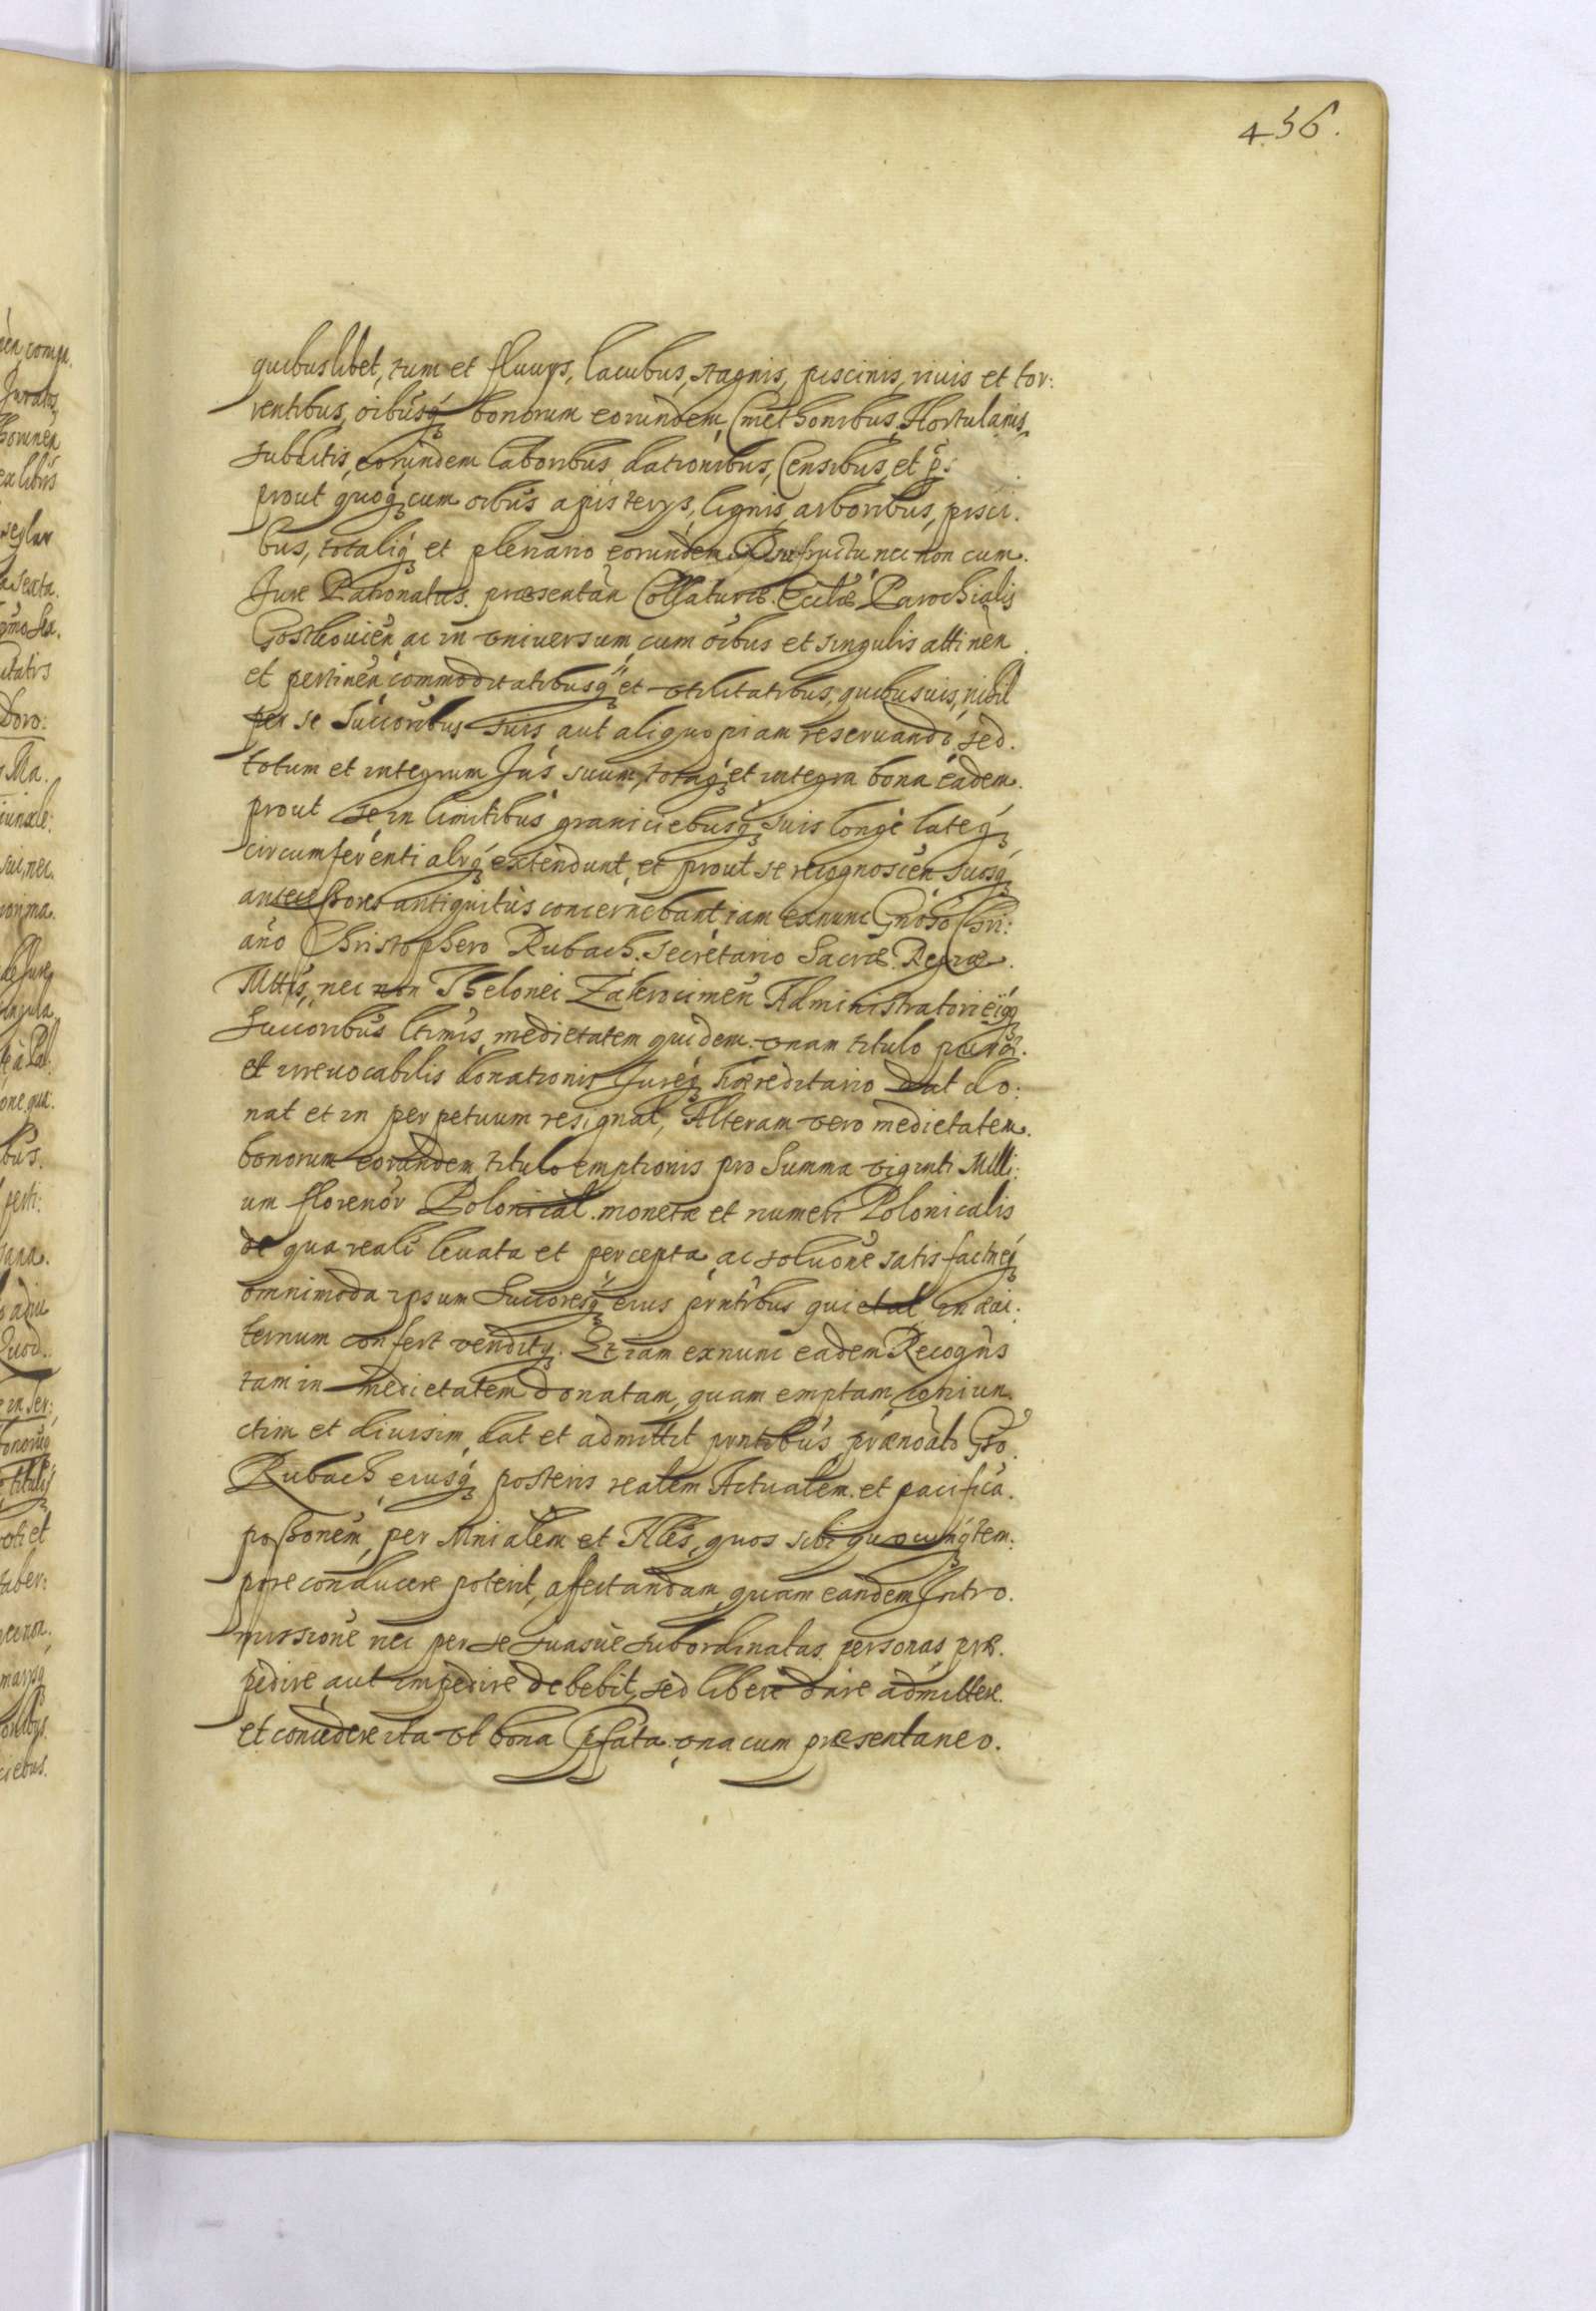 456.
quibuslibet, tum et fluuys, lacubus, stagnis, piscinis, riuis et tor:
rentibus, oĩbusq́ȝ bonorum eorundem, Cmethonibus, Hortulanis,
subditis, eorundem laboribus dationibus, Censibus, et
prout quoq́ȝ cum oĩbus apisterys, lignis, arboribus, pisci.
bus, totaliq́ȝ et plenario eorundem Vsufructu nec non cum.
Jure Patronatus. præsentan̄ Collaturæ. Ecclæ Parochialis
ac in vniuersum, cum oĩbus et singulis attinen̄
et pertinen̄ commoditatibusq́ȝ et vtilitatibus, quibusuis, nihil
per se Succoribus suis aut aliquopiam reseruando, sed.
totum et integrum Jus suum, totaq́ȝ et integra bona eadem.
prout se in limitibus graniciebusq́ȝ suis longe lateq́ȝ
circumferentialrq́ȝ extendunt, et prout se recognoscen̄ suosq́ȝ
antecessores antiquitus concernebant, iam exnunc Gnoso Chri:
ano Christophero Rubach. Secretario Sacræ. Regiæ.
Mttis, nec non Thelonei Zakrocimen̄ Administratori eiq́ȝ
Succoribus ltimis, medietatem quidem. vnam titulo puræ.
et irreuocabilis donationis Jureq́ȝ hæreditario dat do:
nat et in perpetuum resignat, Alteram vero medietatem.
bonorum eorundem titulo emptionis pro Summa viginti Milli:
um florenor̄ Polonical. monetæ et numeri Polonicalis
de qua reali leuata et percepta, ac soluone satisfactneq́ȝ
omnimoda ipsum Succoresq́ȝ eius pñtibus quietat in æui:
ternum confert venditq́ȝ. Et iam exnunc eadem Recogñs
tam in medietatem donatam, quam emptam, coniun.
ctim et diuisim, dat et admittit pñtibus prænoato Gso.
Rubach eiusq́ȝ posteris realem Actualem. et pacificā.
possonem, per Mnialem et Nbles, quos sibi quocunq́ȝ tem:
pore conducere poterit, affectandam, quam eandem Intro.
missione nec per se suasue subordinatas personas præ.
pedire aut impedire debebit, sed libere dare admittere.
et concedere ita vt bona pfata vna cum præsentaneo.